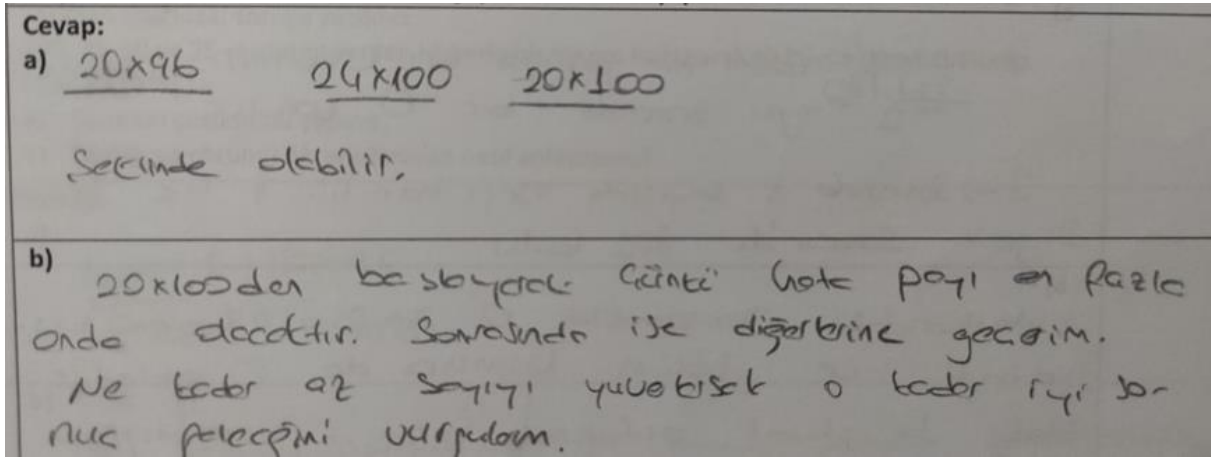 Cevap:
a) 20x96 24x100 20x100
Şeklinde olabilir.
b)
20x100 den başlayarak Çünkü hata payı en fazla
onda olacaktır. Sonrasında ise diğerlerine geçerim.
Ne kadar az sayıyı yuvarlasak o kadar iyi so-
nuç geleceğini vurgularım.